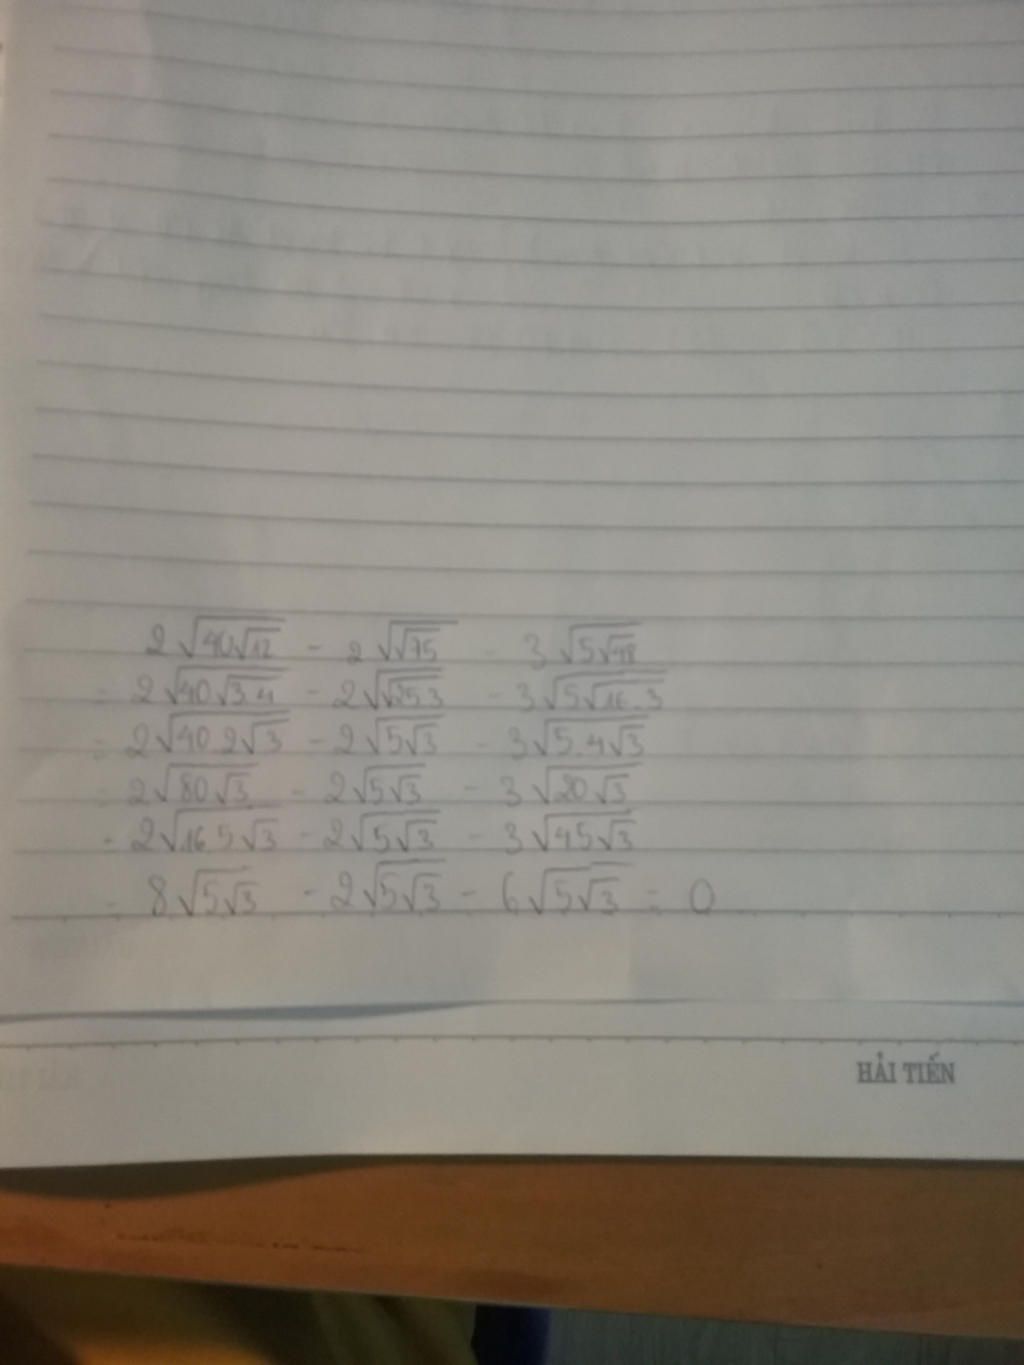 2√(40√12) - 2√(√75) - 3√(5√48)
= 2√(40√(3.4)) - 2√(√(25.3)) - 3√(5√(16.3))
= 2√(40.2√3) - 2√(5√3) - 3√(5.4√3)
= 2√(80√3) - 2√(5√3) - 3√(20√3)
= 2√(16.5√3) - 2√(5√3) - 3√(4.5√3)
= 8√(5√3) - 2√(5√3) - 6√(5√3) = 0
HẢI TIẾN